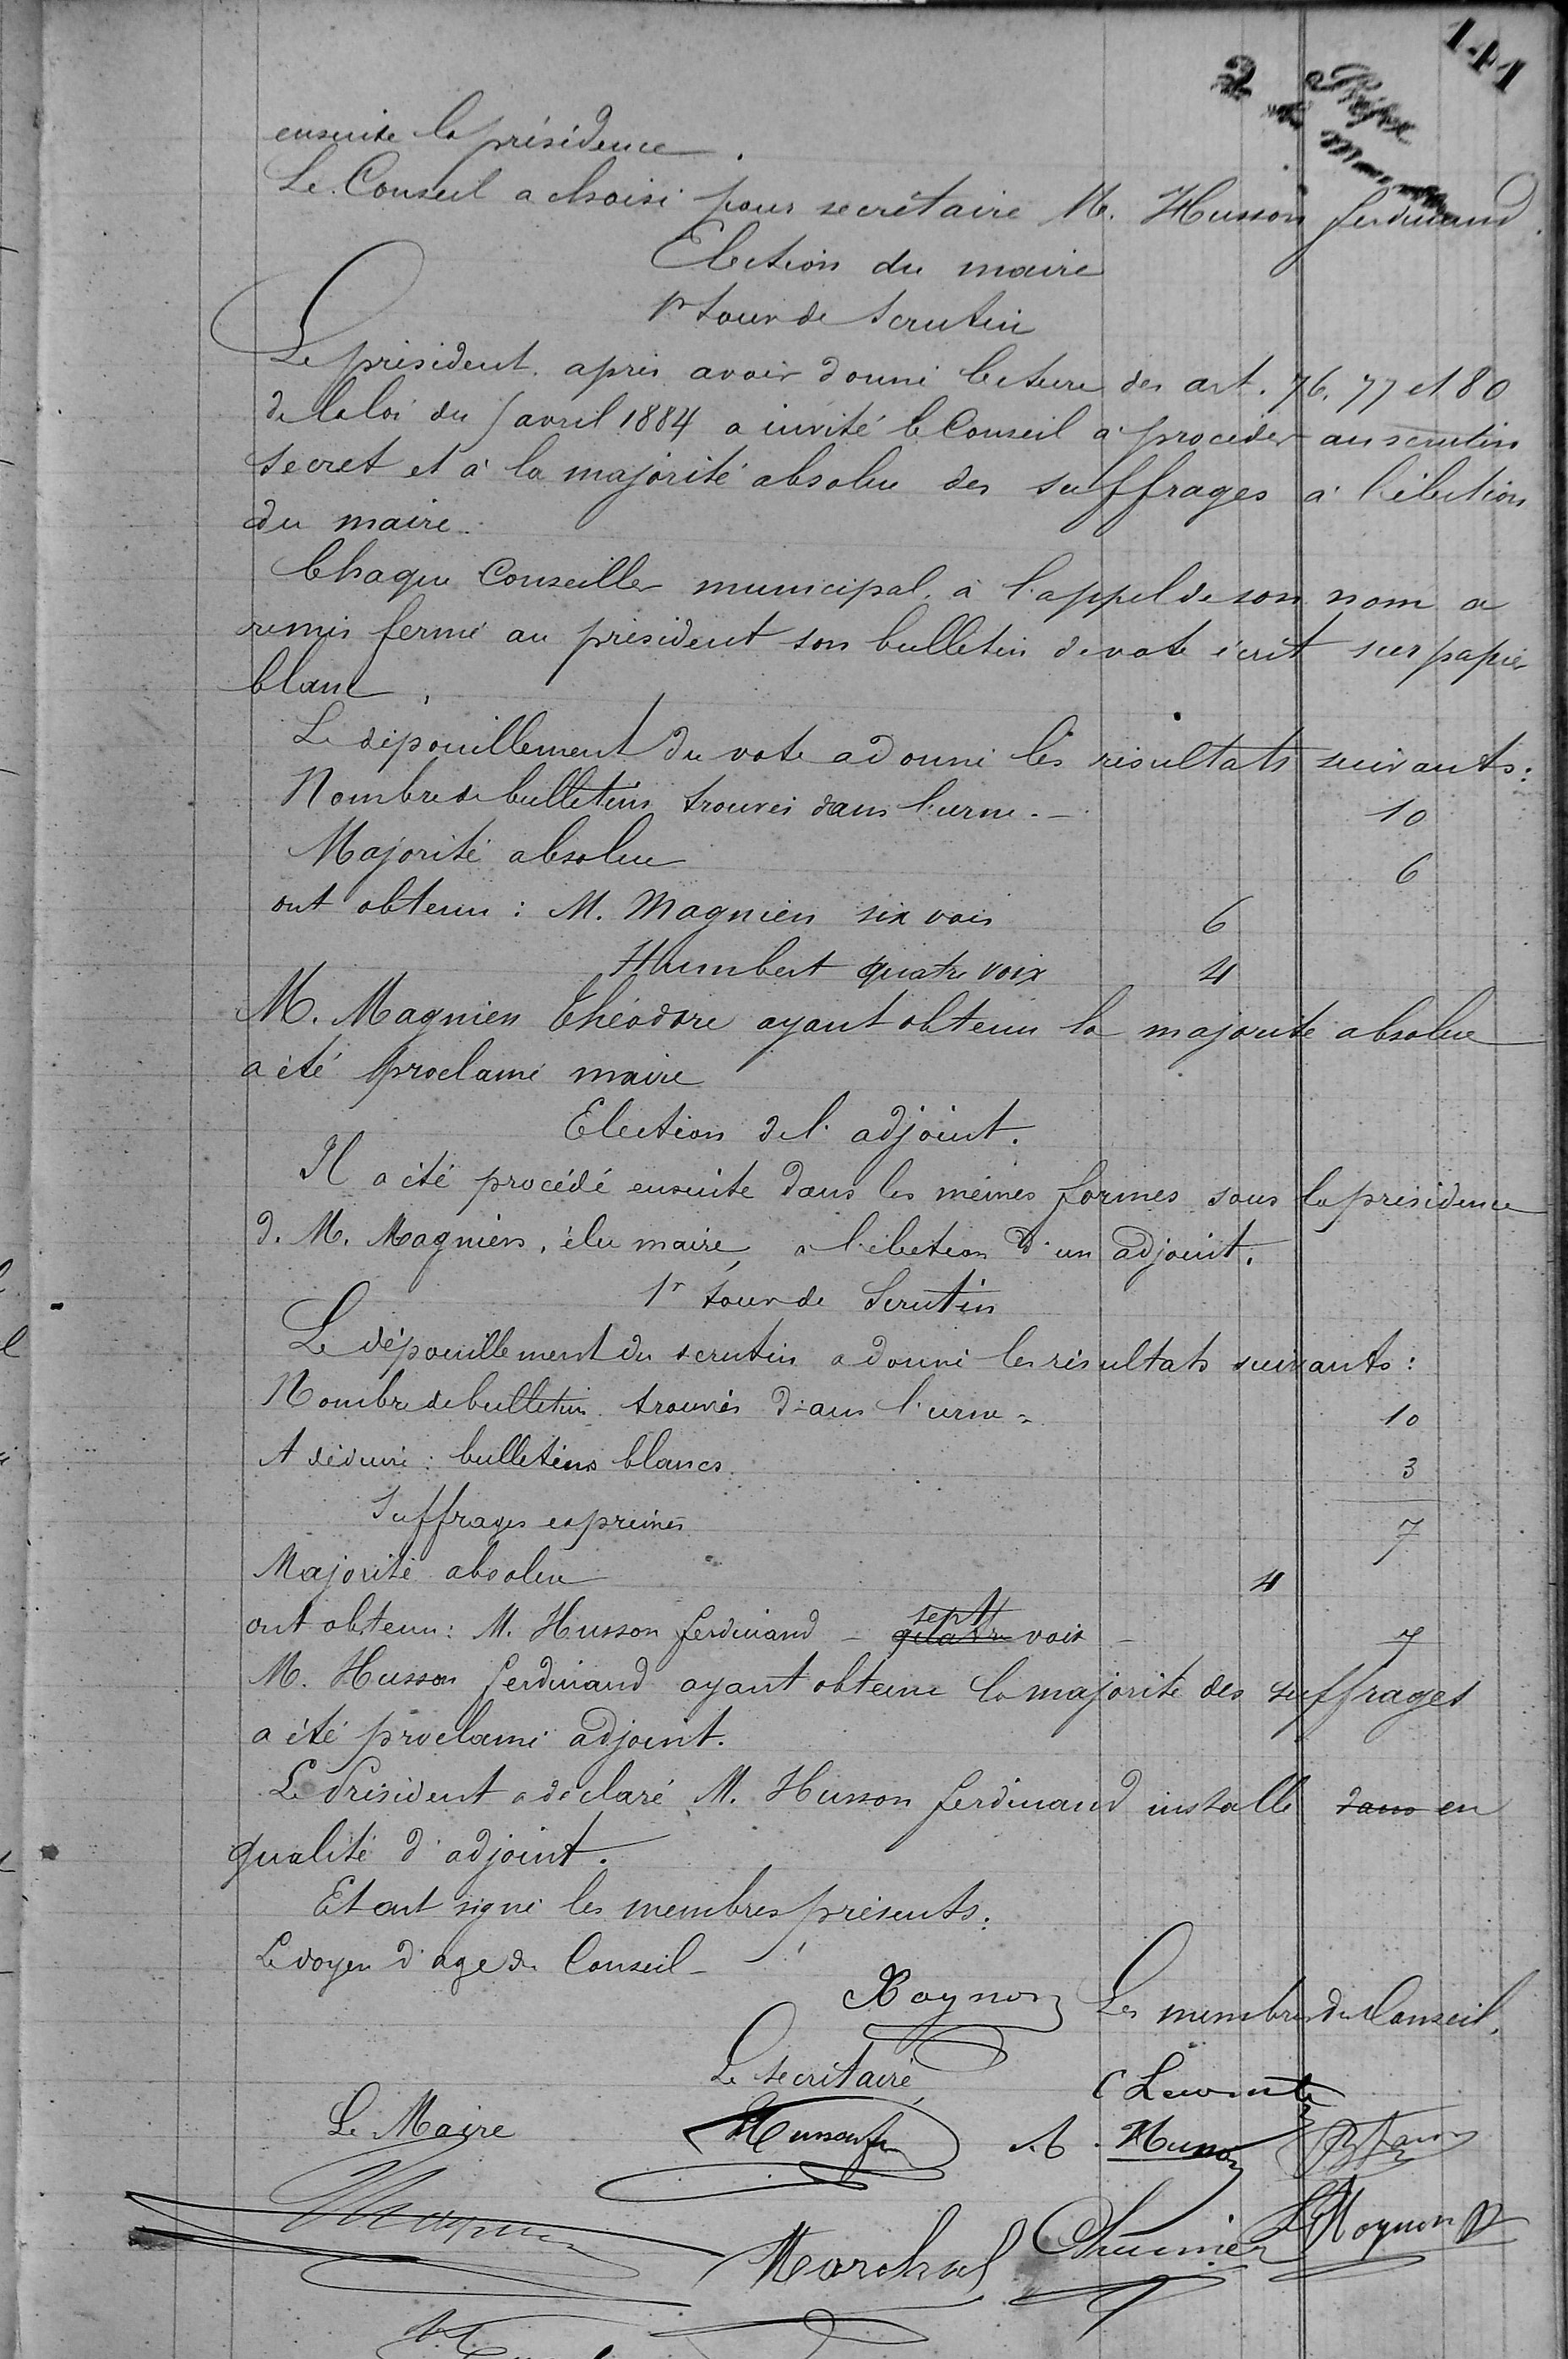 141
2
ensuite la présidence.
Le Conseil a choisi pour secrétaire M. Husson ferdinand.
Election du maire
1r tour de scrutin
Le président, après avoir donné lecture des art. 76, 77 et 80
de la loi du 5 avril 1884 a invité le Conseil à procéder au scrutin
secret et à la majorité absolue des suffrages à l'élection
du maire.
Chaque Conseiller municipal, à l'appel de son nom a
remis fermé au président son bulletin de vote écrit sur papier
blanc.
Le dépouillement du vote a donné les résultats suivants:
Nombre de bulletins trouvés dans l'urne. - 10
Majorité absolue 6
ont obtenu : M. Magnien six voix 6
Humbert quatre voix 4
M. Magnien Théodore ayant obtenu la majorité absolue
a été proclamé maire
Election de l'adjoint.
Il a été procédé ensuite dans les mêmes formes sous la présidence
d. M. Magnien, élu maire, a l'élection d'un adjoint.
1r tour de Scrutin
Le dépouillement du scrutin a donné les résultats suivants :
Nombre de bulletins trouvés dans l'urne - 10
A déduire : bulletins blancs 3
Suffrages exprimés 7
Majorité absolue 4
ont obtenu : M. Husson ferdinand - quatre sept voix - 7
M. Husson ferdinand ayant obtenu la majorité des suffrages
a été proclamé adjoint.
Le Président a déclaré M. Husson ferdinand installé dans en
qualité d'adjoint.
Et ont signé les membres présents.
Le doyen d'age du Conseil -
Noynon Les membres du Conseil,
Le secrétaire,
C Lecomte
Le Maire
Husson f A. Husson
Magnien
Marchal Noynon